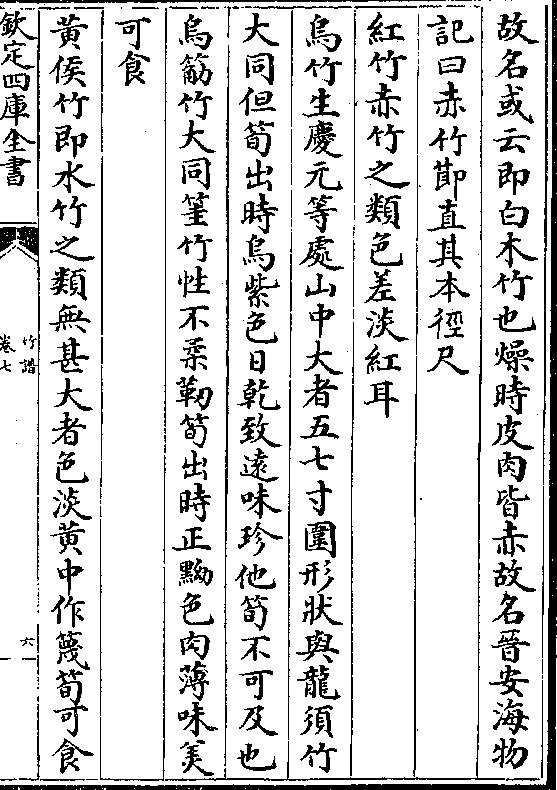 故名或云即白木竹也燥時皮肉皆赤故名晉安海物
記曰赤竹節直其本徑尺
紅竹赤竹之類色差淡紅耳
烏竹生慶元等處山中大者五七寸圍形狀與龍須竹
大同但筍出時烏紫色日乾致遠味珍他筍不可及也
烏筯竹大同篁竹性不柔韌筍出時正黝色肉薄味美
可食
黃侯竹即水竹之類無甚大者色淡黃中作篾筍可食
欽定四庫全書
竹譜
卷七
六